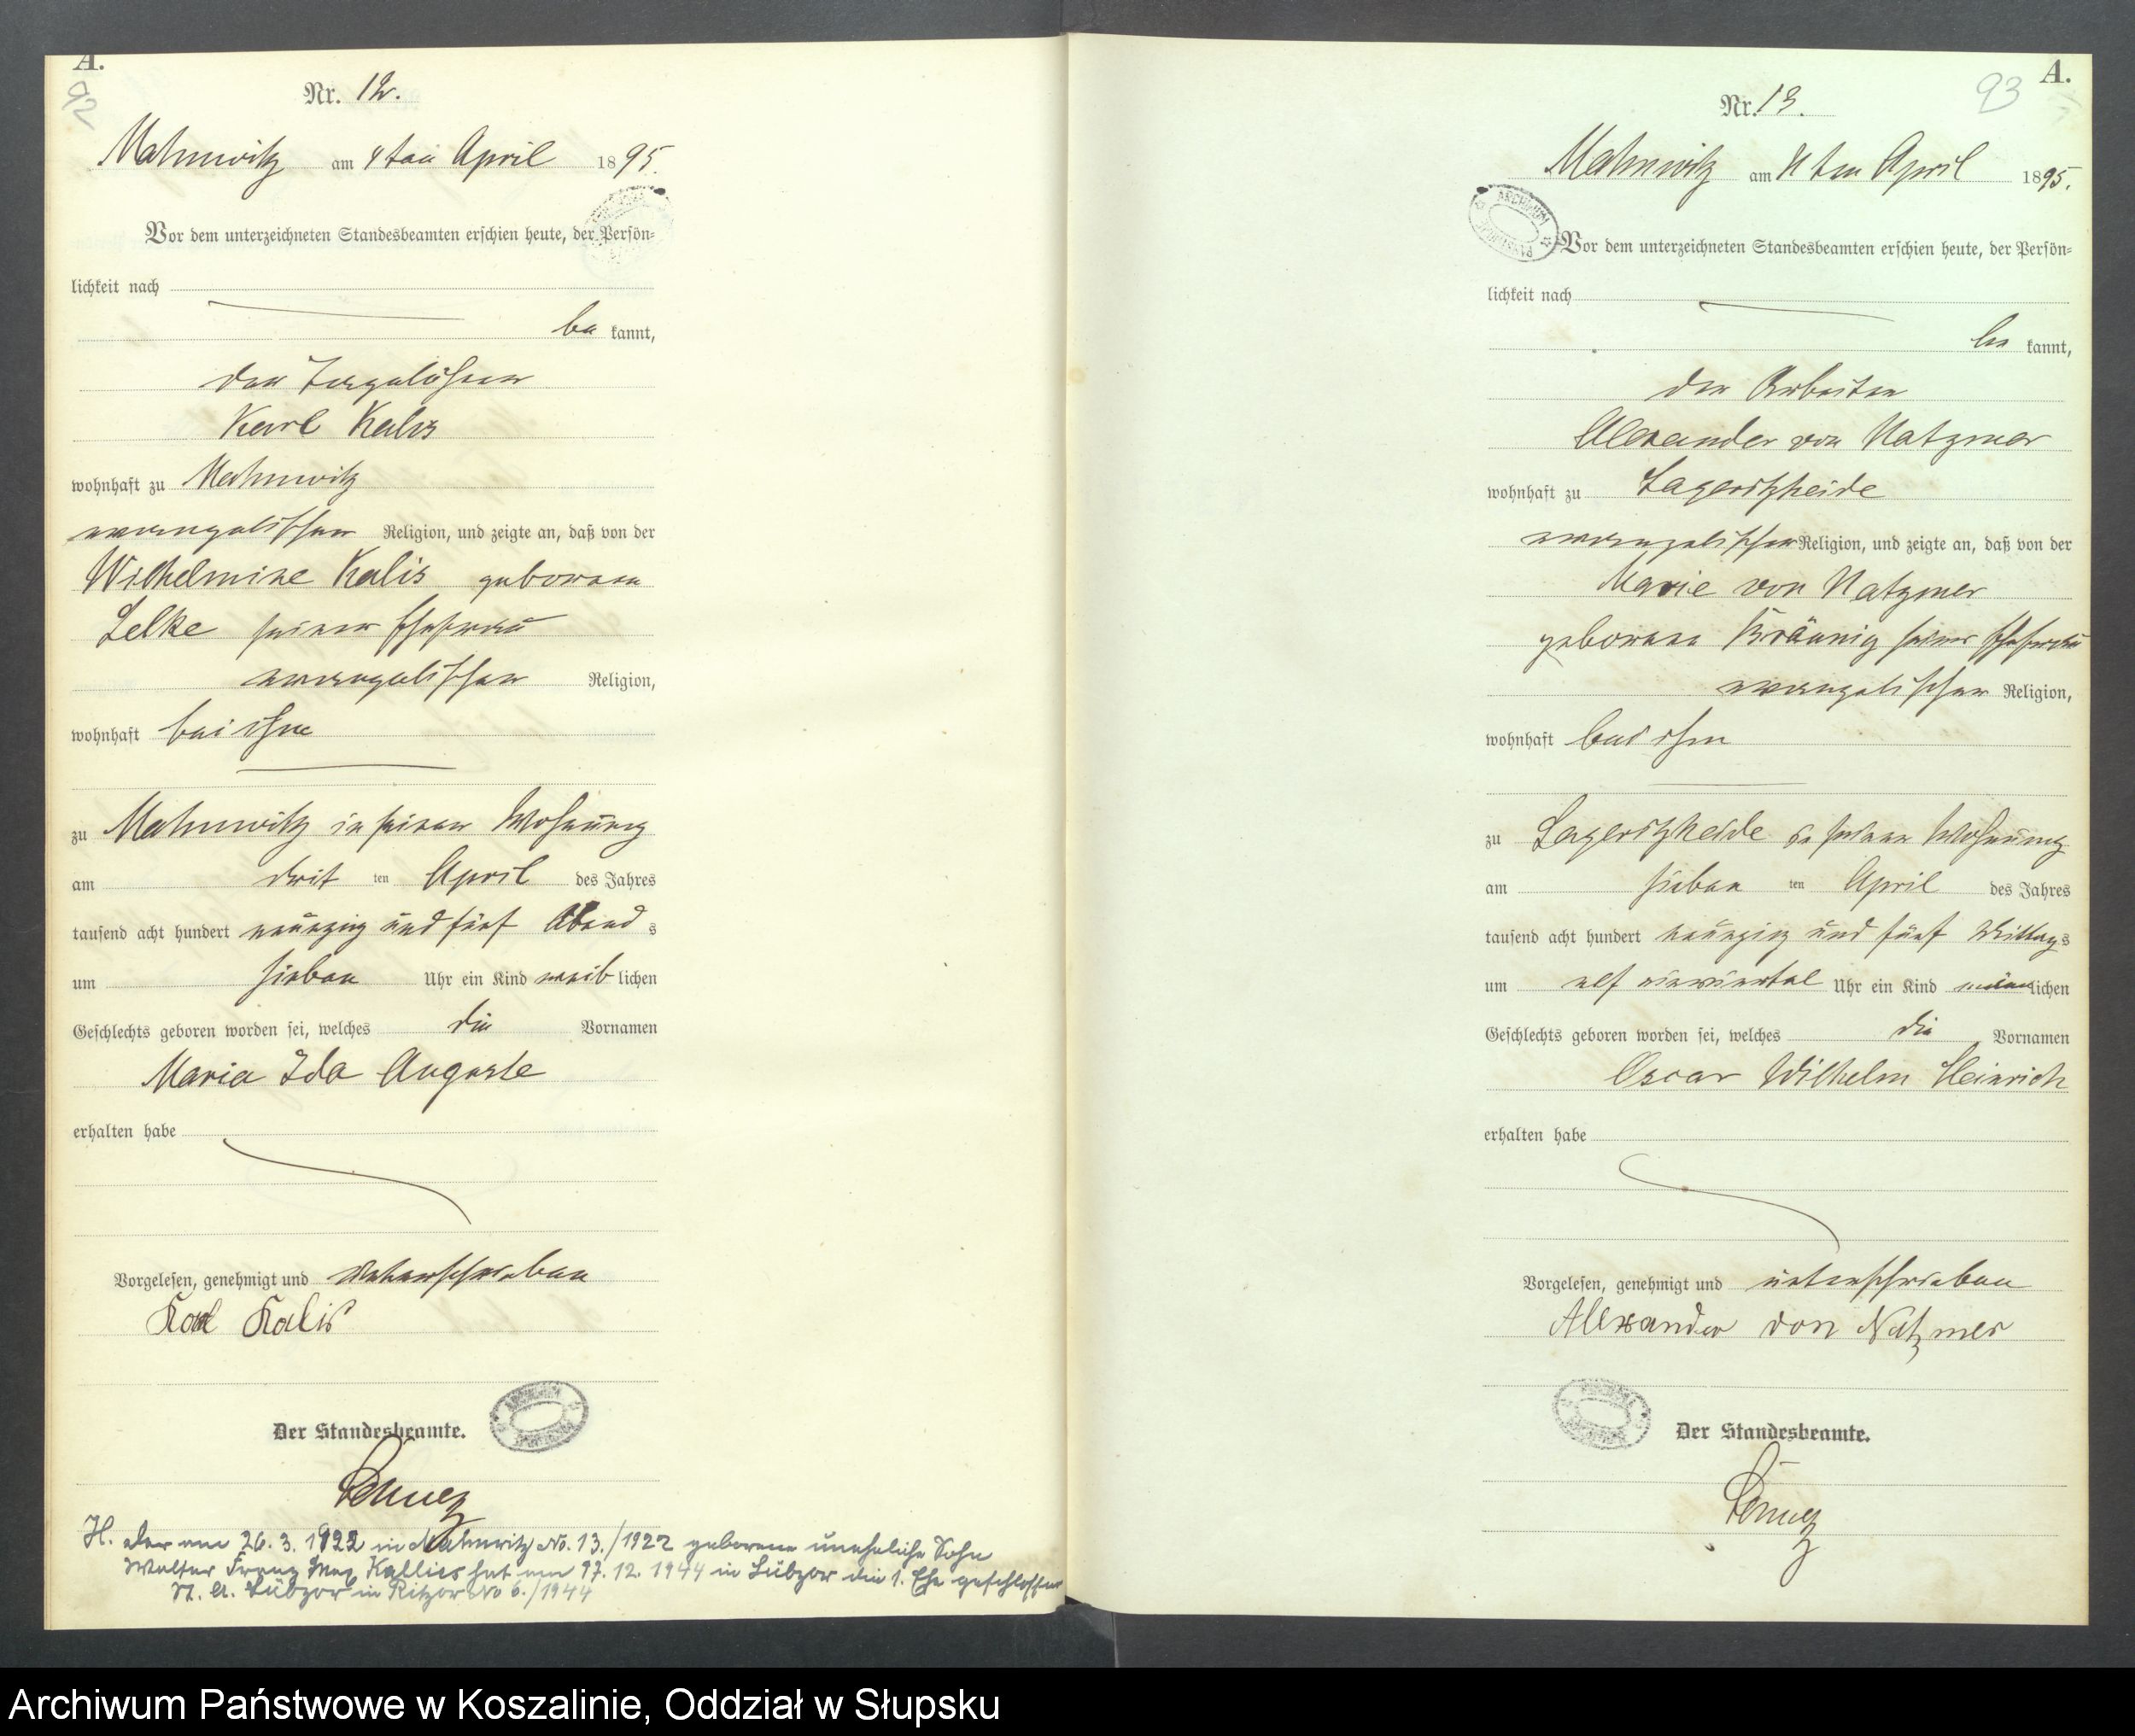 A.
92
Nr. 12.
Mahnwitz am 4ten April 1895.
Vor dem unterzeichneten Standesbeamten erschien heute, der Persön-
lichkeit nach
be kannt,
der
Karl Kalis
wohnhaft zu Mahnwitz
evangelischer Religion, und zeigte an, daß von der
Wilhelmine Kalis geborene
Selke seiner Ehefrau
evangelischer Religion,
wohnhaft bei ihm
zu Mahnwitz in seiner Wohnung
am dritten April des Jahres
tausend acht hundert neunzig und fünf Abends
um sieben Uhr ein Kind weiblichen
Geschlechts geboren worden sei, welches die Vornamen
Maria Ida Auguste
erhalten habe
Vorgelesen, genehmigt und unterschrieben
Karl Kalis
Der Standesbeamte.
H. der am 26.3.1922 in Mahnwitz No. 13./1922 geborene uneheliche Sohn
Walter Franz Max Kallies hat am 17.12.1944 in Lübzow die 1. Ehe geschlossen
St. A. Lübzow in Ritzow No 6./1944
A.
93
Nr. 13.
Mahnwitz am 11ten April 1895.
ARCHIWUM
Vor dem unterzeichneten Standesbeamten erschien heute, der Persön-
lichkeit nach
be kannt,
der Arbeiter
Alexander von Natzmer
wohnhaft zu Lageritzheide
evangelischer Religion, und zeigte an, daß von der
Marie von Natzmer
geborene Bräunig seiner Ehefrau
evangelischer Religion,
wohnhaft bei ihm
zu Lageritzheide in seiner Wohnung
am siebenten April des Jahres
tausend acht hundert neunzig und fünf Mittags
um elf einviertel Uhr ein Kind männlichen
Geschlechts geboren worden sei, welches die Vornamen
Oscar Wilhelm Heinrich
erhalten habe
Vorgelesen, genehmigt und unterschrieben
Alexander von Natzmer
Der Standesbeamte.
Archiwum Państwowe w Koszalinie, Oddział w Słupsku